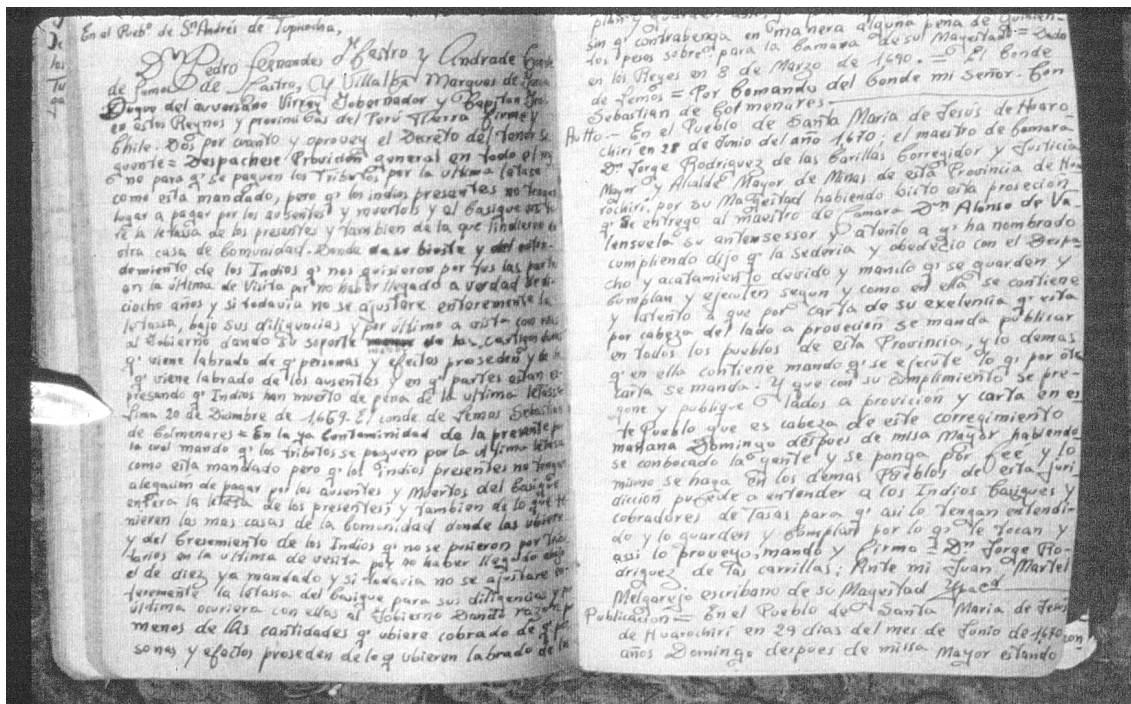 En el Puebº. de Sn Andrés de Tupicocha,
Dn Pedro Fernandes d Castro y Andrade Conde
de Lemos de Castro, y Villalba Marques de
Duque del auversano Virrey Gobernador y Capitan
en estos Reynos y provincias del Perú tierra Firme y
Chile. Dós por cuanto y aprovey el Decreto del tenor se
guente = Despachese Provicion general en todo el
no para q' se paguen los tributos por la ultima letasa
como esta mandado, pero q' los indios presentes no tengan
lugar a pagar por los ausentes y muertos y el Casique
re la letassa de los presentes y tambien de la que
otra casa de Comunidad. Donde
demiento de los Indios q' nos quisieron por sus las
en la última de Visita por no haber llegado a verdad
ciocho años y si todavia no se ajustare enteremente la
letassa, bajo sus diligencias y por ultimo a vista con
al Gobierno dando su soporte de las
q' viene labrado de q' personas y efectos proseden y
q' viene labrado de los ausentes y en q' partes estan
presando q' Indios han muerto de pena de la ultima letassa
Lima 20 de Diambre de 1,669. El conde de Lemos Sebastian
de Colmenares = En la ya Contaminidad de la presente
la cual mando q' los tributos se paguen por la ultima letasa
como esta mandado pero q' los Indios presentes no tengan
alegacion de pagar por los ausentes y Muertos del Casique
entera la letasa de los presentes; y tambien de lo que
nieren las mas casas de la Comunidad donde las ubiere
y del Cresemiento de los Indios q' no se pusieron por
tarios en la ultima de vesita por no haber llegado
el de diez ya mandado y si todavia no se ajustare
teremente la letassa del Casique para sus diligencia y
última ocuriera con ellas al Gobierno Dando razon
menos de las cantidades q' ubiere cobrado de q'
sonas y efectos proseden de lo q ubieren labrado de
plan y guarden
sin q' contrabenga en manera alguna pena de quinien-
tos pesos sobre para la Camara de su Magestad = Dado
en los Reyes en 8 de Marzo de 1690. = El Conde
de Lemos = Por Comando del Conde mi Señor. Don
Sebastian de Colmenares
Autto — En el Pueblo de Santa Maria de Jesús de Huaro
chiri en 28 de Junio del año 1,670; el maestro de Camara
Dn Jorge Rodriguez de las Carillas Corregidor y Justicia
Mayor y Alcalde Mayor de Minas de esta Provincia de Hua
rochiri, por su Magestad habiendo bisto esta prosecion
q' se entrego al maestro de Camara Dn Alonso de Va-
lensuela su antensessor y atento a q' ha nombrado
cumpliendo dijo q' la sederia y obedecio con el Despa-
cho y acatamiento devido y mando q' se guarden y
Cumplan y ejecuten segun y como en ella se contiene
y latento a que por carta de su exelencia q' esta
por cabeza del lado a provecion se manda publicar
en todos los pueblos de esta Provincia, y lo demas
q' en ella contiene mando q' se ejecute lo q' por
carta se manda. Y que con su Cumplimiento se pre-
gone y publique lados a provicion y carta en es
te Pueblo que es cabeza de este corregimiento
mañana Domingo despues de misa Mayor habiendo
se conbocado la gente y se ponga por Fee y lo
mismo se haga en los demas Pueblos de esta juri
diccion puede a entender a los Indios Casiques y
cobradores de Tasas para q' asi lo tengan entendi-
do y lo guarden y Cumplan por lo q' le tocan y
assi lo proveyo, mando y Firmo = Dn Jorge Ro-
driguez de las carrillas; Ante mi Juan Martel
Melgarejo escribano de su Magestad
Publicacion = En el Pueblo de Santa Maria de Jesus
de Huarochiri en 29 dias del mes de Junio de 1,670
años Domingo despues de missa Mayor estando